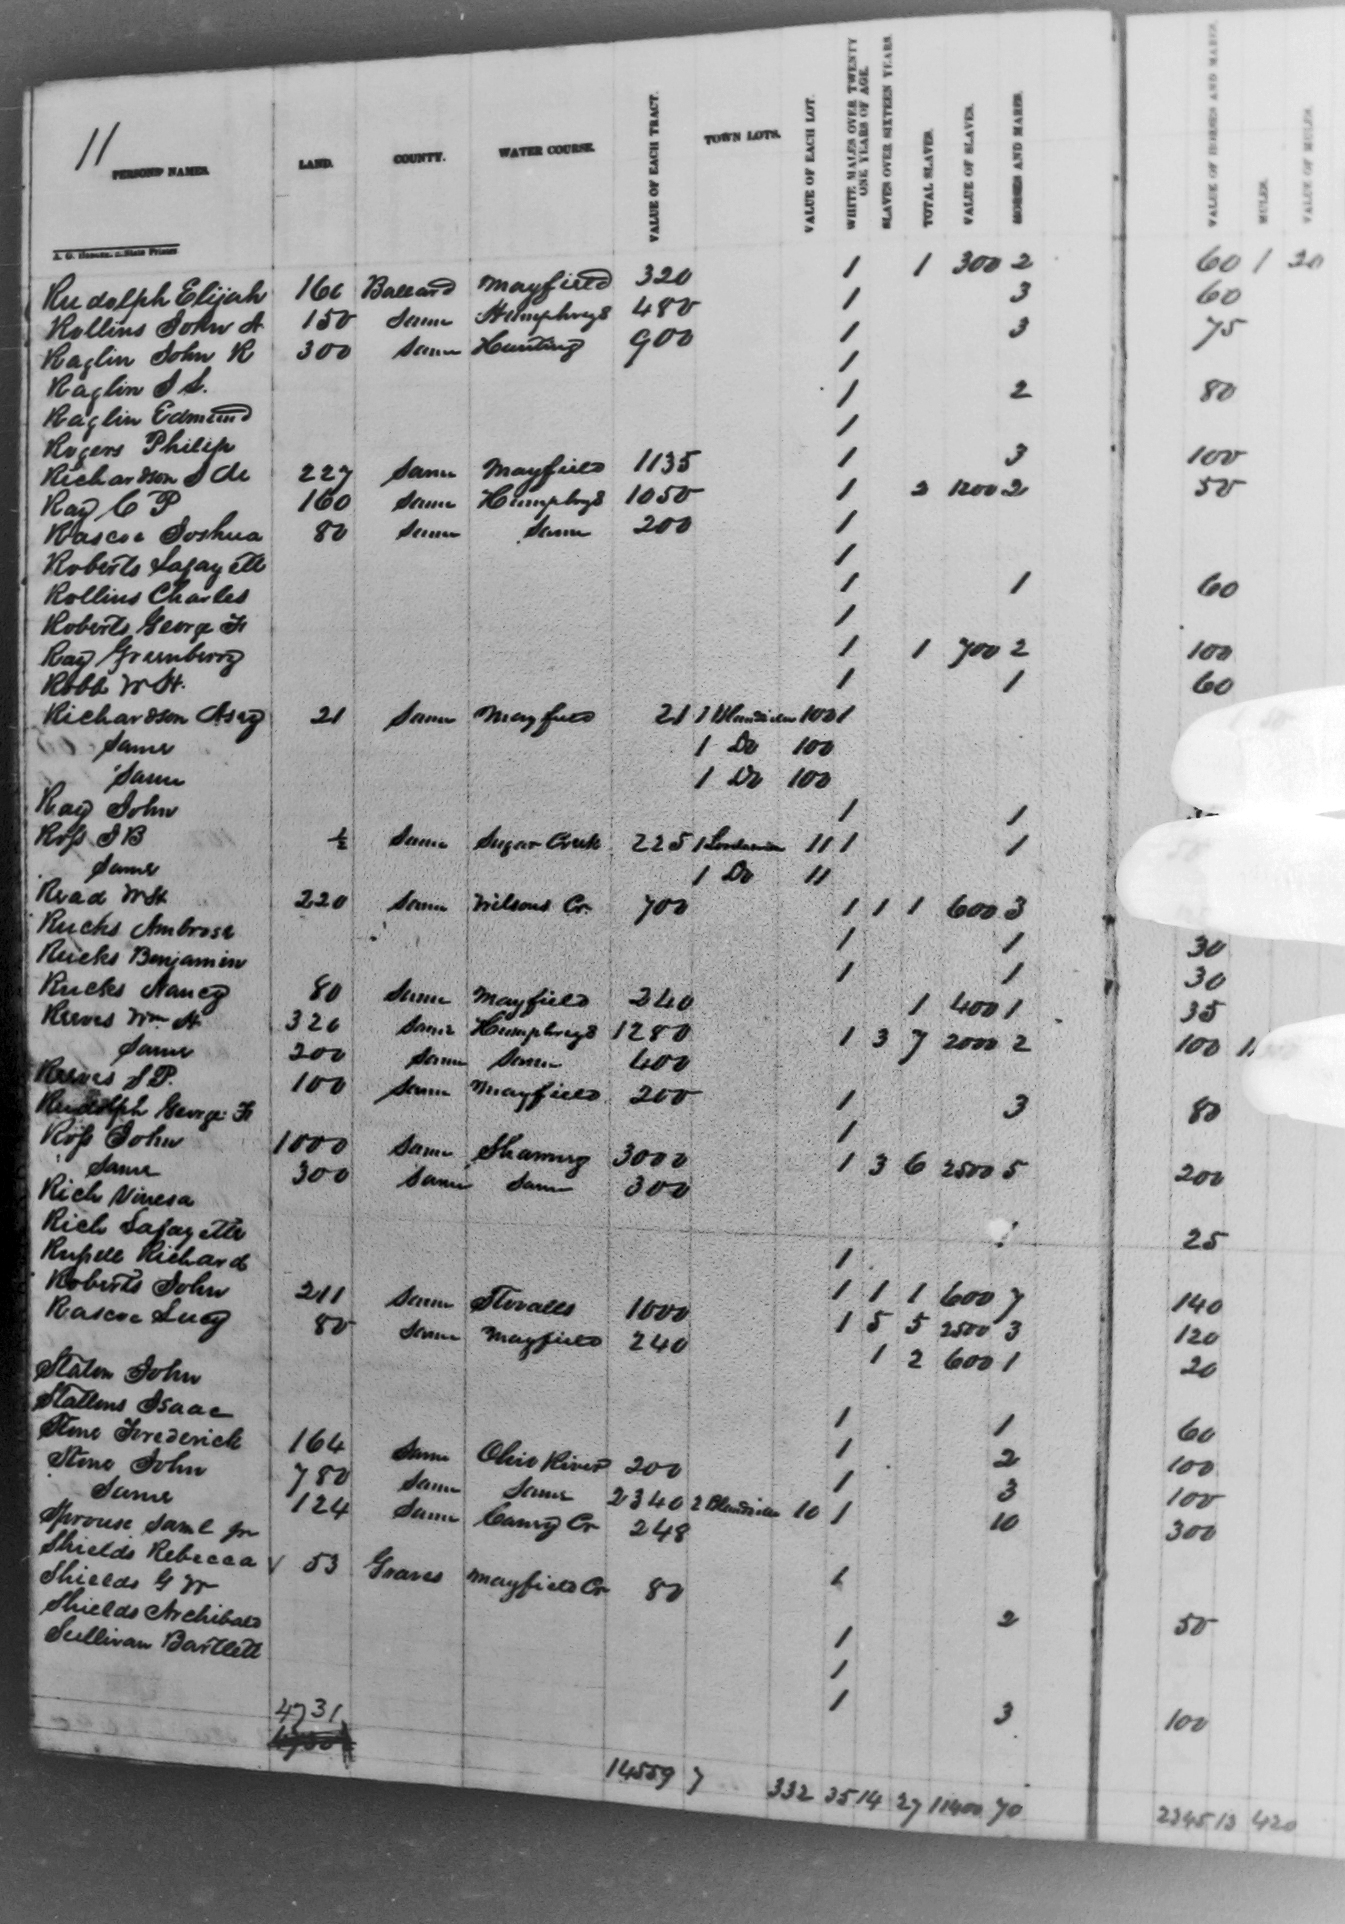 11
PERSONS' NAMES. LAND. COUNTY. WATER COURSE. VALUE OF EACH TRACT. TOWN LOTS. VALUE OF EACH LOT. WHITE MALES OVER TWENTY ONE YEARS OF AGE. SLAVES OVER SIXTEEN YEARS. TOTAL SLAVES. VALUE OF SLAVES. HORSES AND MARES. VALUE OF HORSES AND MARES. MULES. VALUE OF MULES.
State Printer
Rudolph Elijah 160 Ballard Mayfield 320 1 1 300 2 60 1 20
Rollins John A 150 Same Humphreys 480 1 3 60
Raglin John R 300 Same Hunting 900 1 3 75
Raglin J S. 1
Raglin Edmund 1 2 80
Rogers Philip 1
Richardson J 227 Same Mayfield 1135 1 3 100
Ray C P 160 Same Humphrys 1050 1 2 1200 2 50
Rascoe Joshua 80 Same Same 200 1
Roberts Lafayette 1
Rollins Charles 1 1 60
Roberts George F 1
Ray Greenberry 1 1 700 2 100
Robb W H. 1 1 60
Richardson Asey 21 Same Mayfield 21 1 Blandville 100 1
Same 1 Do 100
Same 1 Do 100
Ray John 1 1
Ross J B ½ Same Sugar Creek 225 1 11 1 1
Same 1 Do 11
Read W H 220 Same Wilsons Cr. 700 1 1 1 600 3
Rucks Ambrose 1 1 30
Rucks Benjamin 1 1 30
Rucks Nancy 80 Same Mayfield 240 1 400 1 35
Reeves Wm H 320 Same Humphreys 1280 1 3 7 2000 2 100
Same 200 Same Same 400
Reeves J P. 100 Same Mayfield 200 1 3 80
Rudolph George F 1
Ross John 1000 Same Shawney 3000 1 3 6 2500 5 200
Same 300 Same Same 300
Rich Vinesa 1 25
Rich Lafayette 1
Russell Richard 1 1 1 600 7 140
Roberts John 211 Same Stovalls 1000 1 5 5 2500 3 120
Rascoe Lucy 80 Same Mayfield 240 1 2 600 1 20
Staton John 1 1 60
Stallons Isaac 1 2 100
Stone Frederick 164 Same Ohio River 200 1 3 100
Stone John 780 Same Same 2340 2 Blandville 10 1 10 300
Same 124 Same Caney Cr 248
Sprouse Saml Jr 1
Shields Rebecca 53 Graves Mayfield Cr 80 2 50
Shields G W 1
Shields Archibald 1
Sullivan Bartlett 1 3 100
4731
14559 7 332 35 14 27 11400 70 2345 13 420